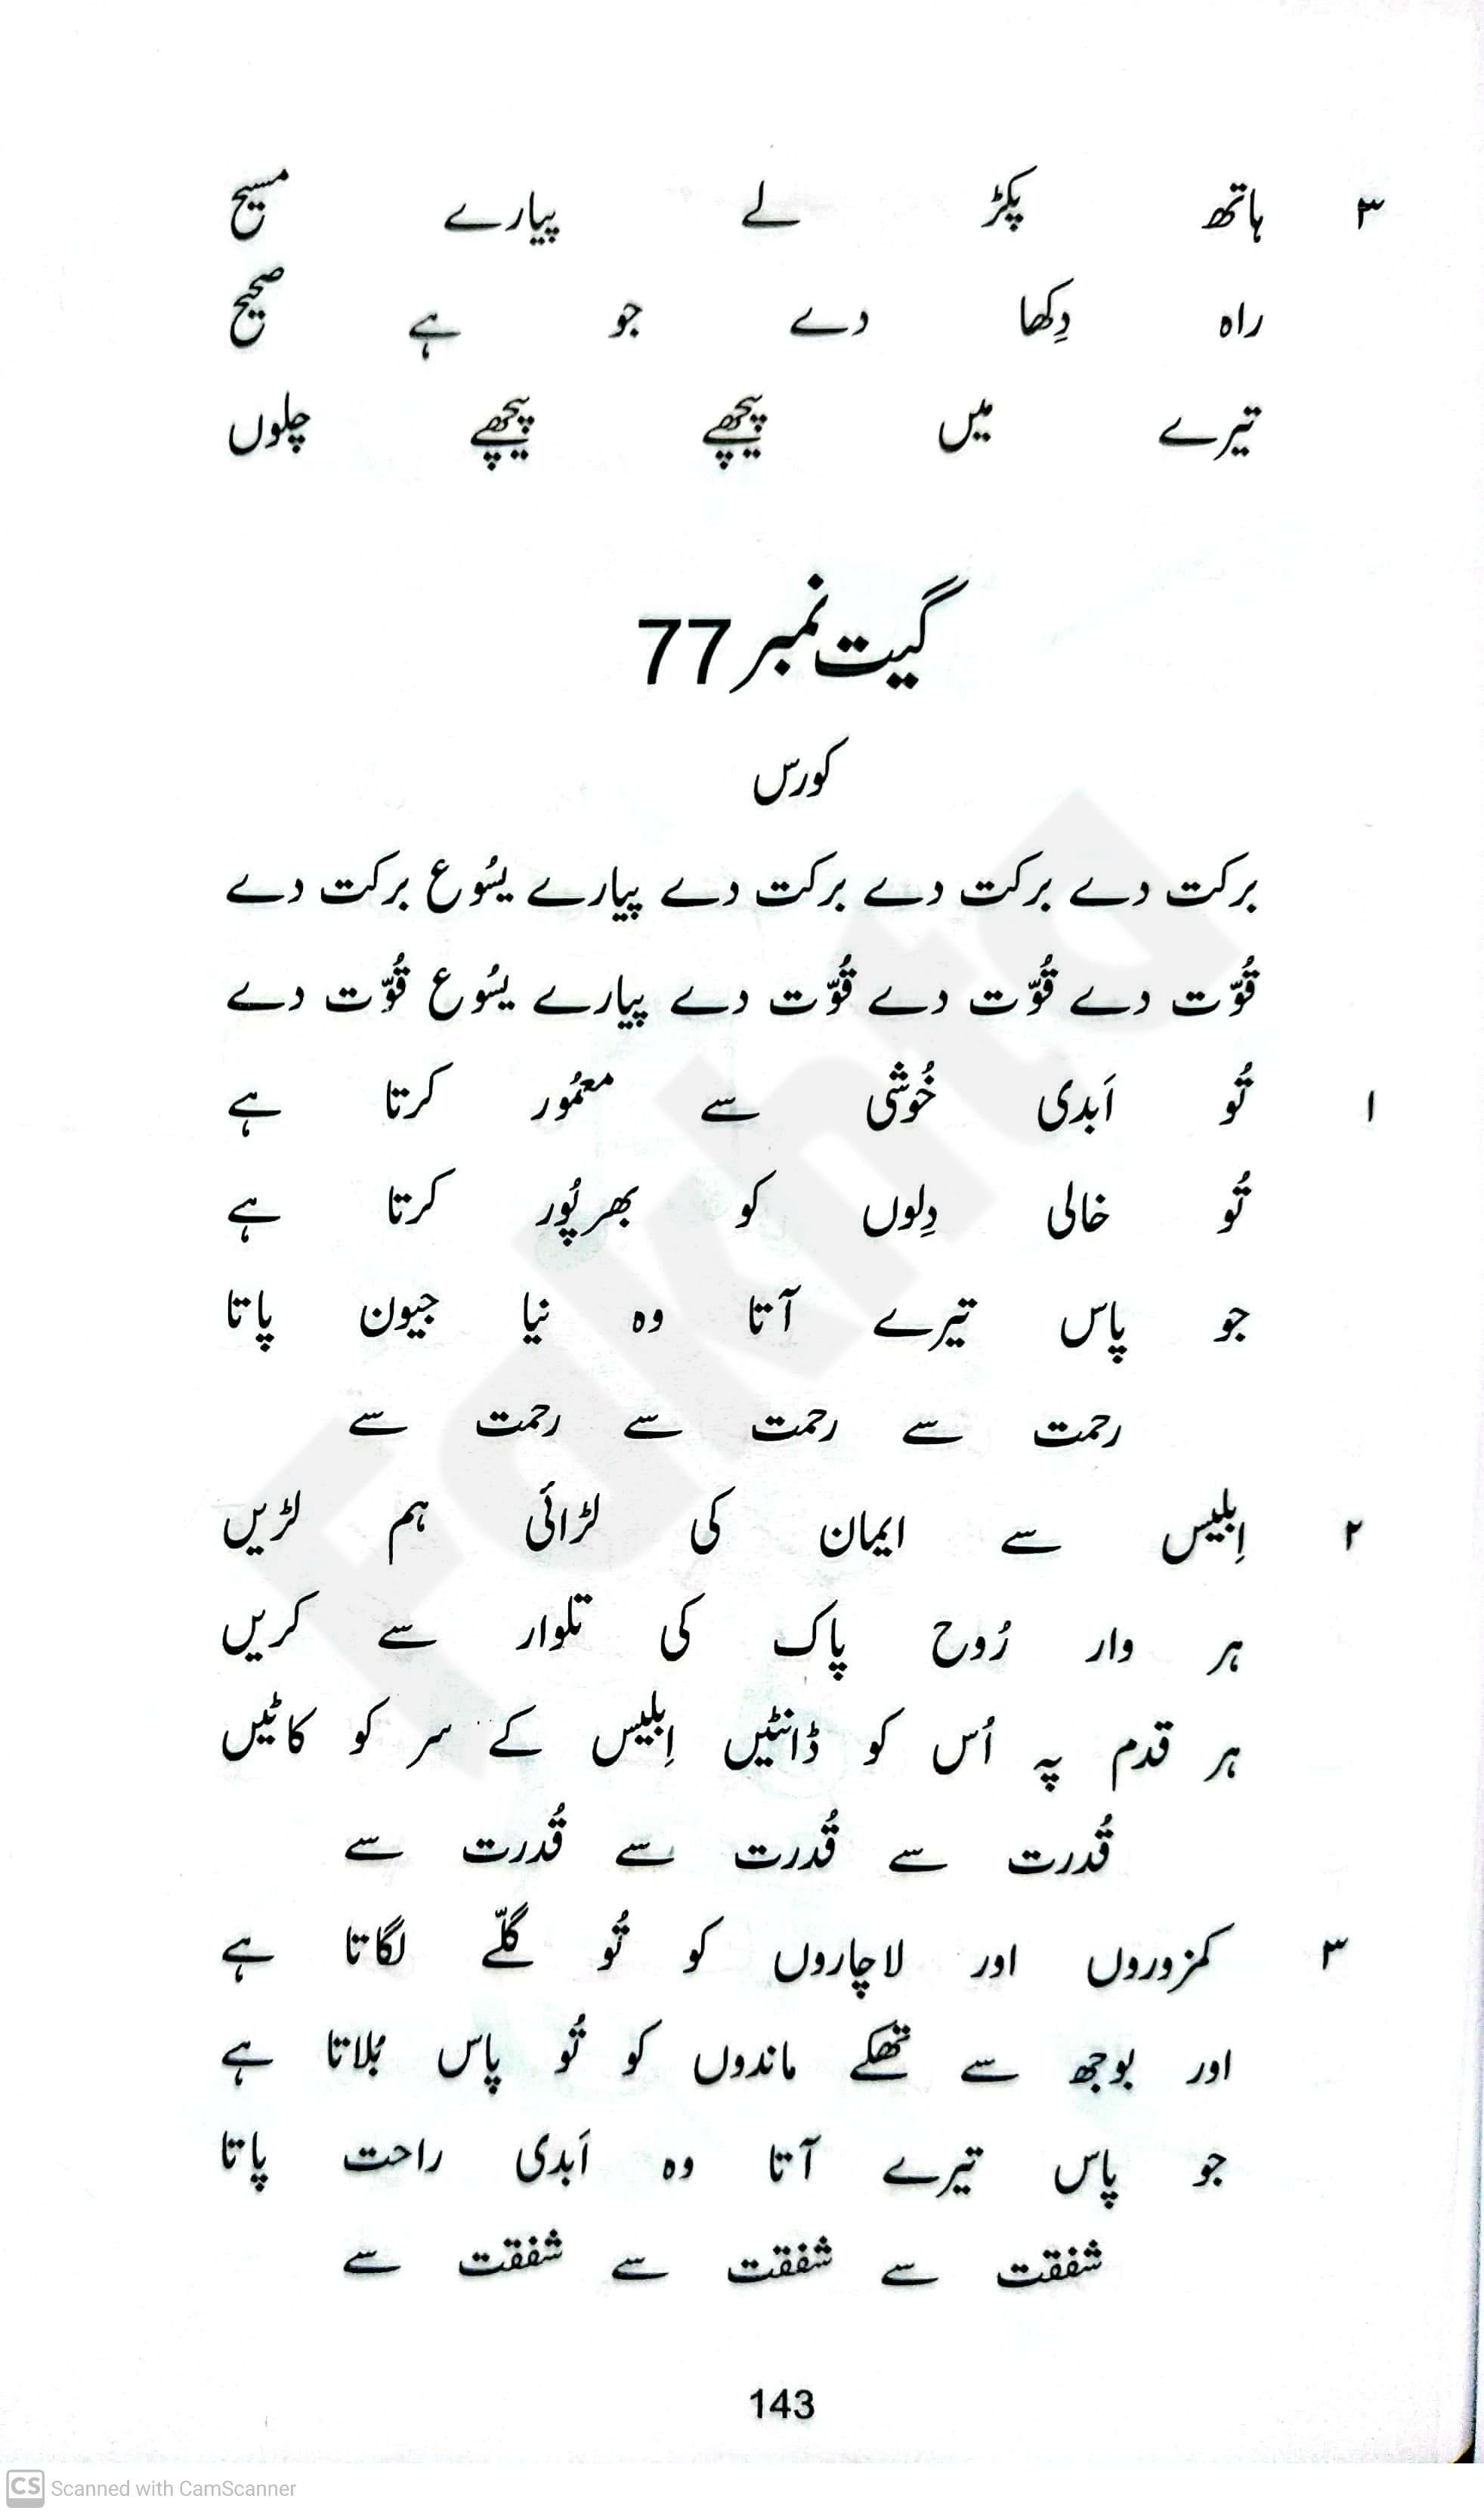 ۳ ہاتھ پکڑ لے پیارے مسیح
راہ دِکھا دے جو ہے صحیح
تیرے میں پیچھے پیچھے چلوں
گیت نمبر 77
کورس
برکت دے برکت دے برکت دے پیارے یسُوع برکت دے
قُوّت دے قُوّت دے قُوّت دے پیارے یسُوع قُوّت دے
۱ تُو اَبدی خُوشی سے معمُور کرتا ہے
تُو خالی دِلوں کو بھرپُور کرتا ہے
جو پاس تیرے آتا وہ نیا جیون پاتا
رحمت سے رحمت سے رحمت سے
۲ اِبلیس سے ایمان کی لڑائی ہم لڑیں
ہر وار رُوح پاک کی تلوار سے کریں
ہر قدم پہ اُس کو ڈانٹیں اِبلیس کے سر کو کاٹیں
قُدرت سے قُدرت سے قُدرت سے
۳ کمزوروں اور لاچاروں کو تُو گلّے لگاتا ہے
اور بوجھ سے تھکے ماندوں کو تُو پاس بُلاتا ہے
جو پاس تیرے آتا وہ اَبدی راحت پاتا
شفقت سے شفقت سے شفقت سے
143
Fakhta
CS Scanned with CamScanner